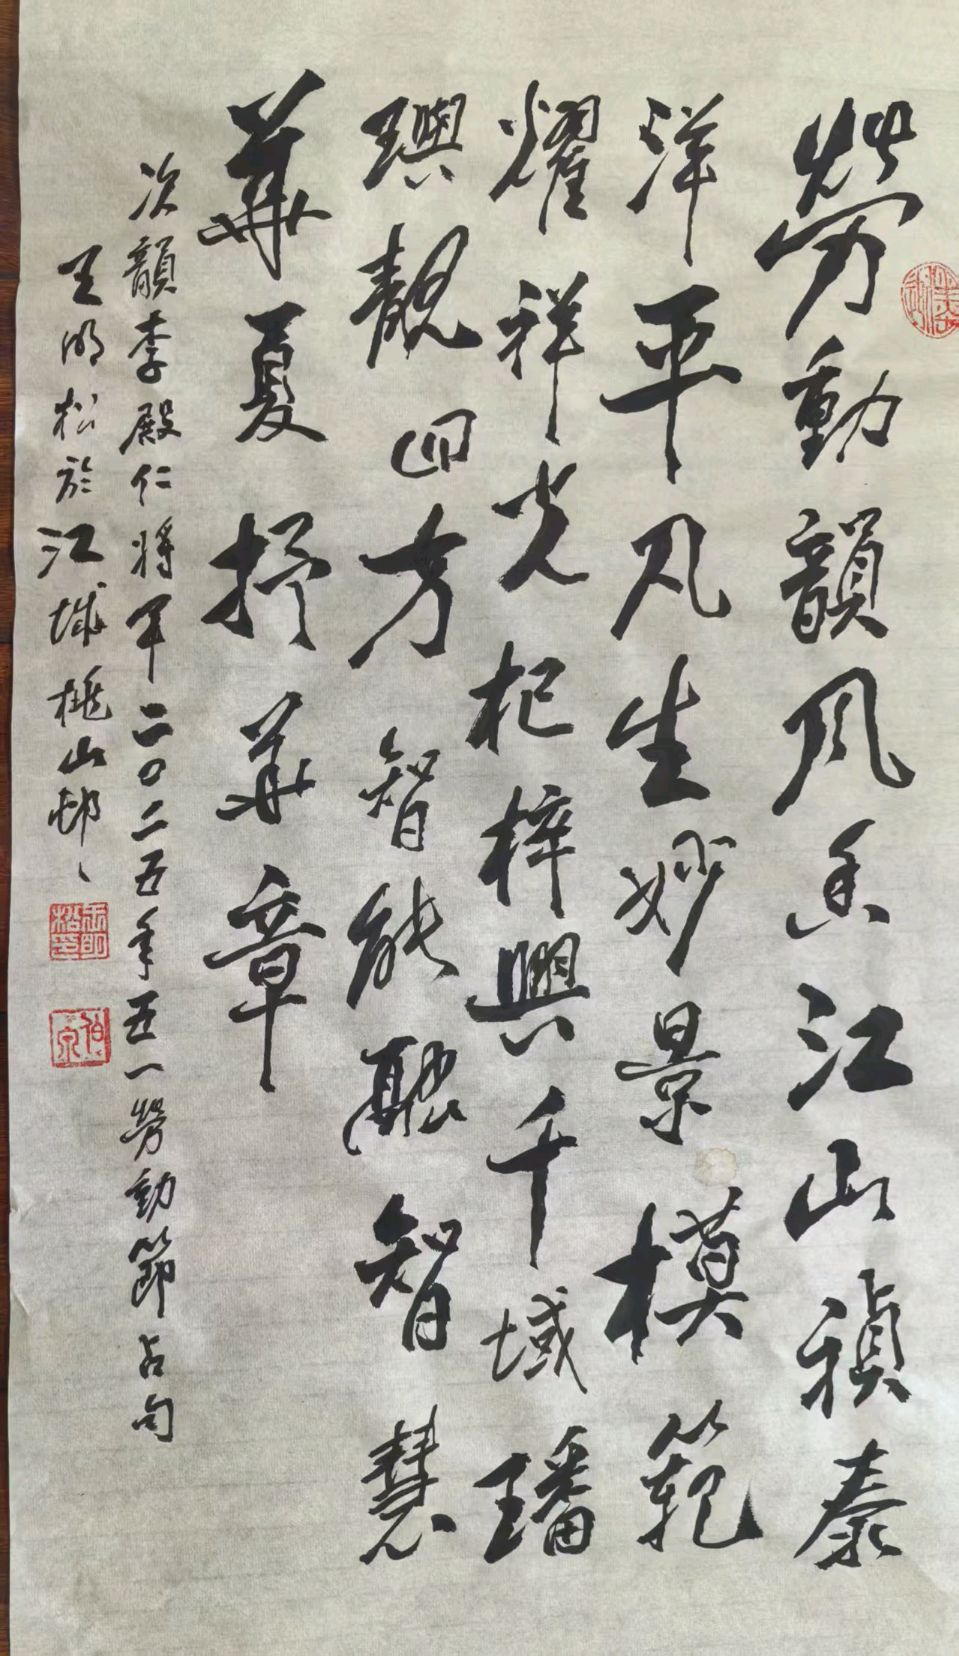 勞動韻风香江山禎泰
洋平凡生妙景模範
耀祥光杞梓興千域璠
璵靓四方智能融智慧
華夏抒華章
次韻李殿仁将军二〇二五年五一勞動節占句
王明松於江城桃山邨